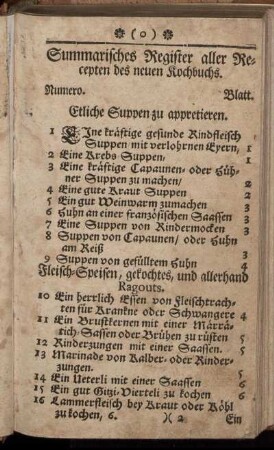 (o)
Summarisches Register aller Re-
cepten des neuen Kochbuchs.
Numero. Blatt.
Etliche Suppen zu appretieren.
1 EJne kräftige gesunde Rindfleisch
Suppen mit verlohrnen Eyern, 1
2 Eine Krebs Suppen, 1
3 Eine kräftige Capaunen- oder Hüh-
ner Suppen zu machen/ 2
4 Eine gute Kraut Suppen 2
5 Ein gut Weinwarm zumachen 2
6 Huhn an einer französischen Saassen 3
7 Eine Suppen von Rindermocken 3
8 Suppen von Capaunen/ oder Huhn
am Reiß 3
9 Suppen von gefülltem Huhn 4
Fleisch-Speisen, gekochtes, und allerhand
Ragouts.
10 Ein herrlich Essen von Fleischtrach-
ten für Krankne oder Schwangere 4
11 Ein Brustkernen mit einer Märrä-
tich-Sassen oder Brühen zu rüsten 5
12 Rinderzungen mit einer Saassen. 5
13 Marinade von Kalber- oder Rinder-
zungen. 5
14 Ein Ueterli mit einer Saassen 6
15 Ein gut Gitzi-Vierteli zu kochen 6
16 Lammerfleisch bey Kraut oder Köhl
zu kochen, 6. )( 2 Ein